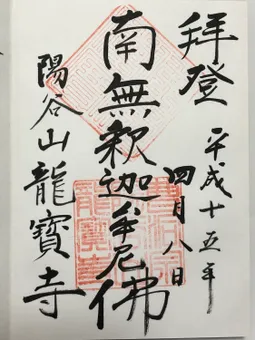 拜登
平成十五年
四月八日
南無釈迦牟尼佛
陽谷山龍寳寺